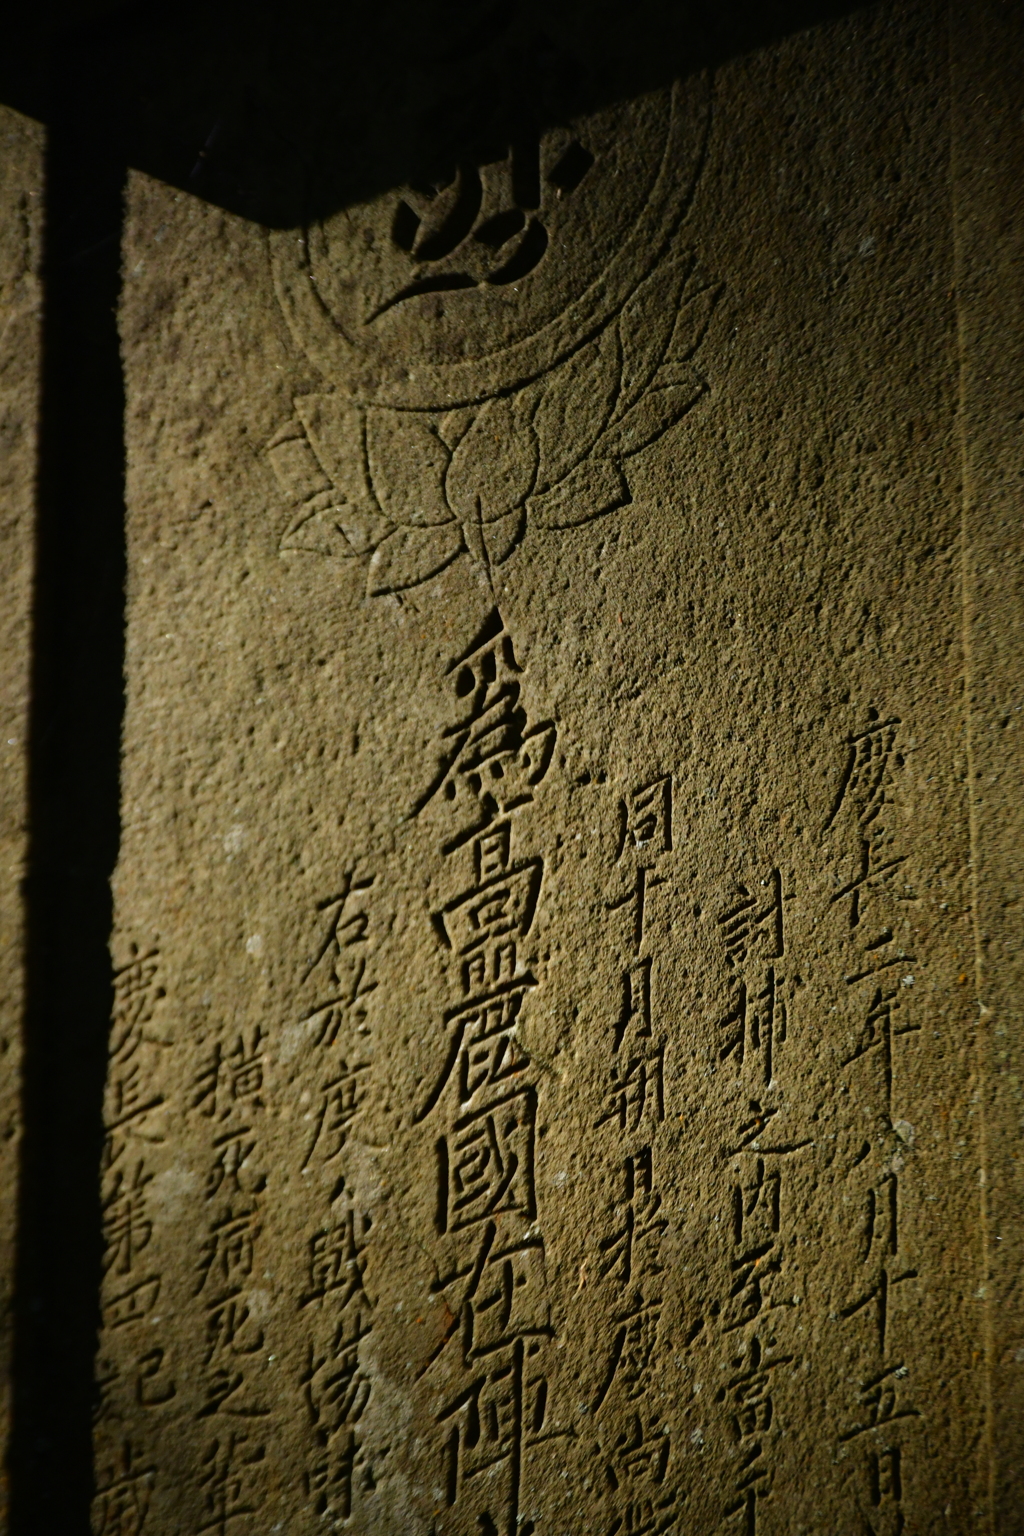 慶長二年八月十五日
討捕之内至當手
同十月朔日於慶尚
爲高麗國在陣
右於度々戰場味
横死病死之輩
慶長第四己亥歳